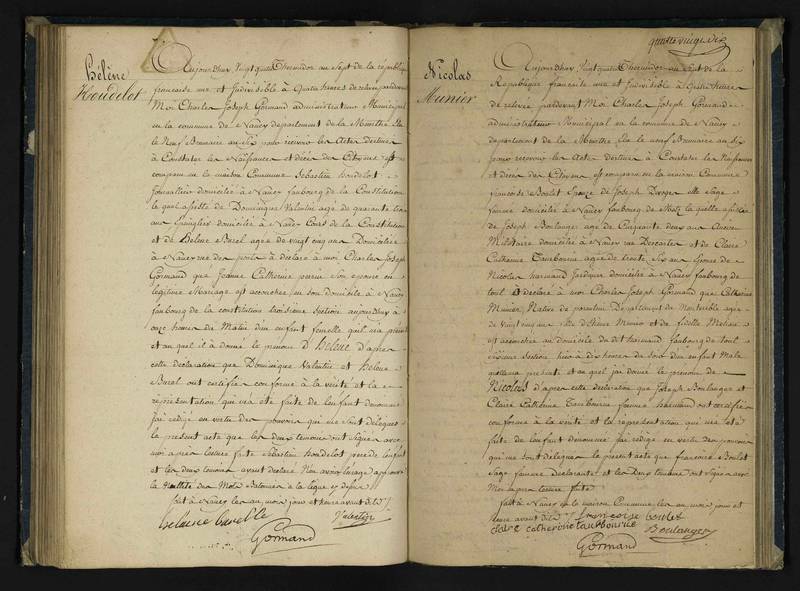 Hélène
Houdelot
Aujourd'huy vingt quatre Thermidor an Sept de la république
française une et Indivisible à Quatre heures de relevée pardevant
Moi Charles Joseph Gormand administrateur Municipal
en la commune de Nancy département de la Meurthe Elu
le Neuf Brumaire an Six pour recevoir les Actes destinés
à Constater les Naissances et décès des Citoyens est
comparu en la maison Commune Sébastien houdelot
domicilié à Nancy faubourg de la Constitution
le quel assisté de Dominique Valentin agé de quarante
ans domicilié à Nancy Cours de la Constitution
et de Helene Burel agée de vingt cinq ans Domiciliée
à Nancy rue des ponts à déclaré à moi Charles Joseph
Gormand que Jeanne Catherine son épouse en
légitime Mariage est accouchée en son domicile à Nancy
faubourg de la constitution troisieme Section aujourd'huy à
onze heures du Matin d'un enfant femelle qu'il m'a présenté
et au quel il à donné le prénom d'Hélène d'apres
cette déclaration que Dominique Valentin et Helene
Burel ont certifiée conforme à la vérité et la
représentation qui m'a été faite de l'enfant dénommé
j'ai rédigé en vertu des pouvoirs qui me sont délégués
le présent acte que les deux témoins ont Signé avec
moi après lecture faite Sébastien houdelot père de l'enfant
et les deux témoins ayant déclaré
la des Mots à la ligne
fait à Nancy les an, mois jour et heure avant dits
helaine burelle Valentin
Gormand
quatre vingt dix
Nicolas
Munier
Aujourd'huy vingt quatre Thermidor an Sept de la
République française une et Indivisible à quatre heures
de relevée pardevant Moi Charles Joseph Gormand
administrateur Municipal en la commune de Nancy
département de la Meurthe Elu le neuf Brumaire an Six
pour recevoir les Actes destinés à Constater les Naissances
et décès des Citoyens est comparu en la maison Commune
françoise Boulet Epouse de Joseph Sage
femme domiciliée à Nancy faubourg de Metz la quelle assistée
de Joseph Boulanger agé de Cinquante deux ans
Militaire domicilié à Nancy rue Descartes et de Claire
Catherine Tambourine agée de trente Six ans Epouse de
Nicolas harmand Jardinier domicilié à Nancy faubourg de
toul à déclaré à moi Charles Joseph Gormand que Catherine
Munier Native de Département de agée
de vingt ans fille d'Etienne Munier et de
est accouchée au domicile du dit harmand faubourg de toul
Section hier à dix heures du Soir d'un enfant Male
présenté et au quel j'ai donné le prénom de
Nicolas d'après cette déclaration que Joseph Boulanger et
Claire Catherine Tambourine femme harmand ont certifiée
conforme à la vérité et la représentation qui m'a été
faite de l'enfant dénommé j'ai rédigé en vertu des pouvoirs
qui me sont délégués le présent acte que françoise Boulet
Sage femme Déclarante et les Deux témoins ont Signé avec
Moi après lecture faite
fait à Nancy en la maison Commune les an mois jour et
heure avant dits françoise boulet
claire catherine tambourine Boulanger
Gormand